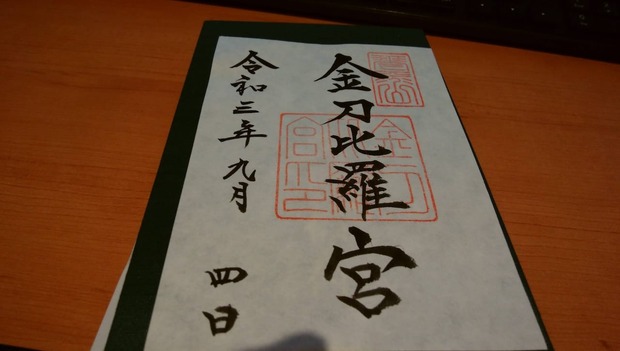 金刀比羅宮
令和三年九月 四日